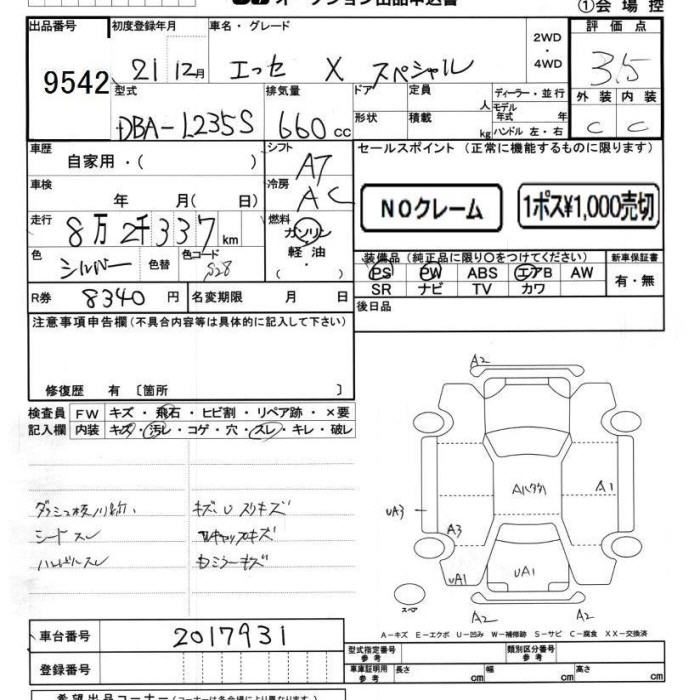 オークション出品申込書
①会場控
出品番号 初度登録年月 車名・グレード 2WD ・ 4WD 評価点
9542 21 12月 エッセ X スペシャル 3.5
型式 排気量 ドア 定員 人 ディーラー・並行 外装 内装
DBA-L235S 660cc 形状 積載 kg モデル年式 年式 ハンドル 左・右 C C
車歴 自家用・( ) シフト AT セールスポイント (正常に機能するものに限ります)
車検 年 月( 日) 冷房 AC NOクレーム 1ポス¥1,000売切
走行 8万2千337km 燃料 ガソリン 軽油 ・ ( )
色 シルバー 色替 色コード S28
装備品 (純正品に限り○をつけてください) 新車保証書
PS PW ABS エアB AW 有・無
SR ナビ TV カワ
R券 8340円 名変期限 月 日 後日品
注意事項申告欄 (不具合内容等は具体的に記入して下さい)
修復歴 有 〔箇所 〕
検査員 FW キズ・飛石・ヒビ割・リペア跡・×要
記入欄 内装 キズ・汚レ・コゲ・穴・スレ・キレ・破レ
A2
キズ、U スリキズ
シートスレ キズ
ハンドルスレ ミラーキズ
A1
UA3
A3
UA1 UA1
スペア
A2 A2
A-キズ E-エクボ U-凹み W-補修跡 S-サビ C-腐食 XX-交換済
車台番号 2017931
型式指定番号 参考 類別区分番号 参考
登録番号
車庫証明用 参考 長さ cm 幅 cm 高さ cm
希望出品コーナー